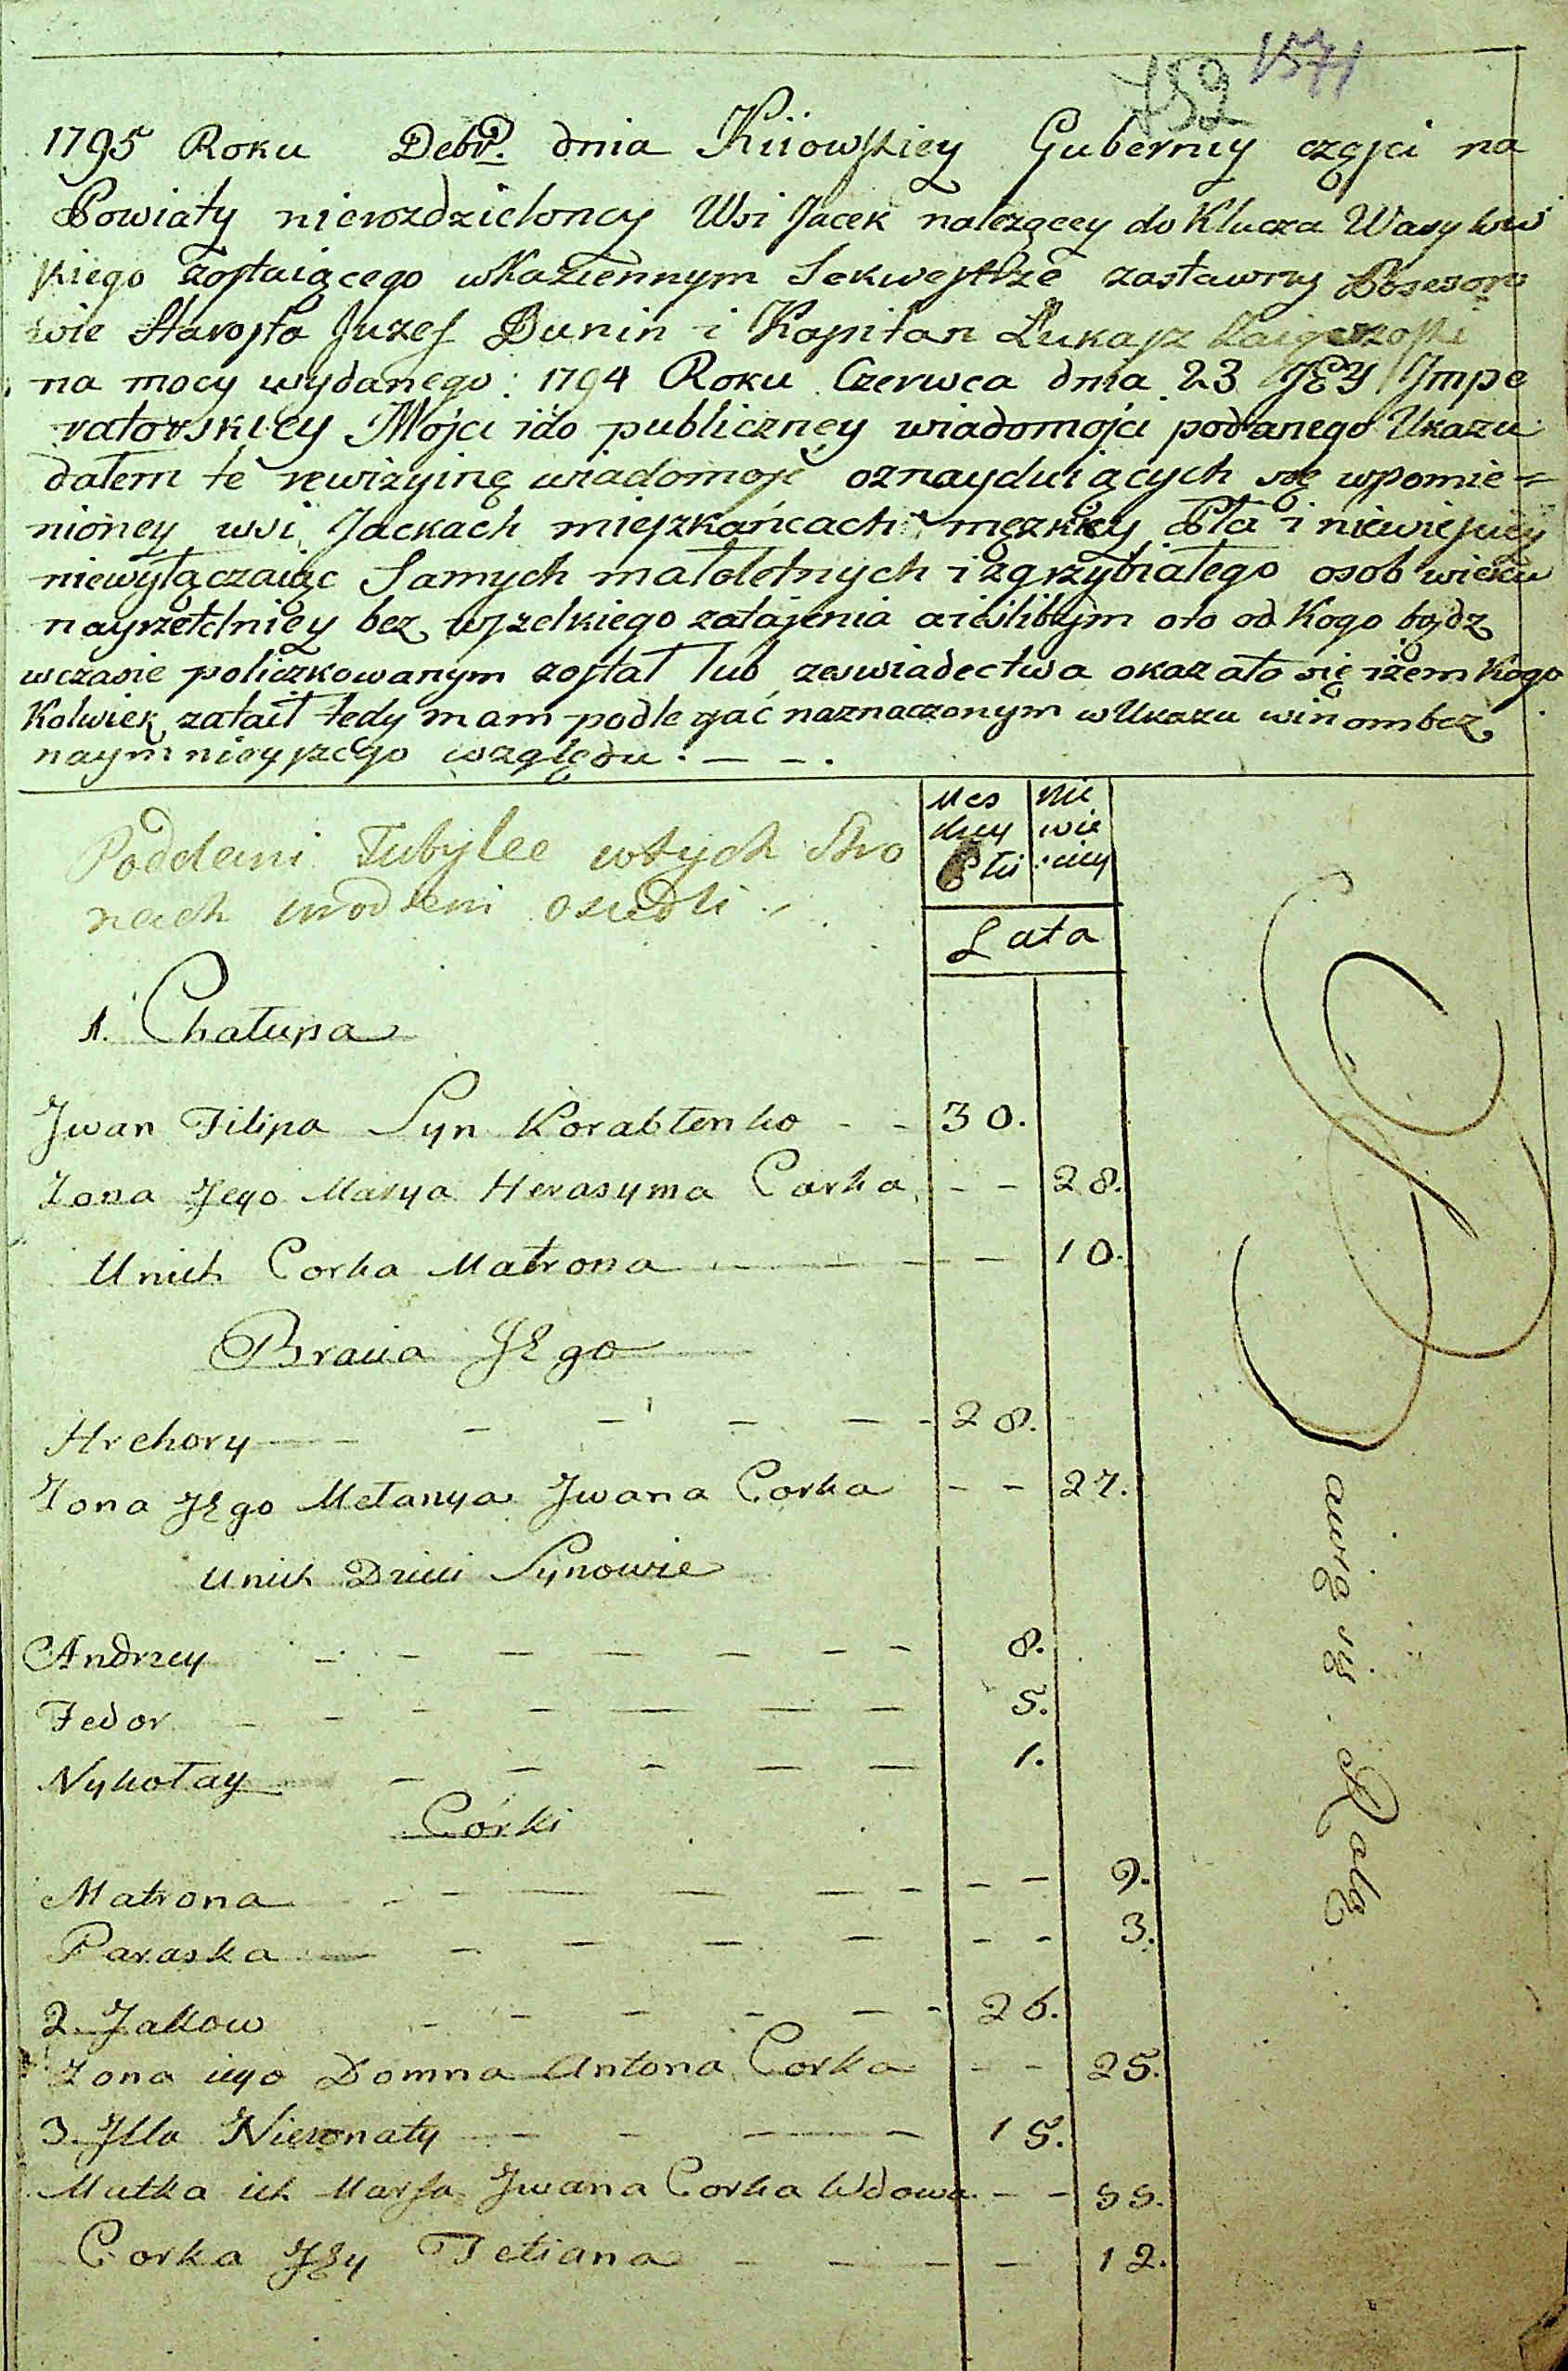 752 1571
1795 Roku Debr. dnia Kiiowskiey Guberniy częsci na
Powiaty nierozdzieloney Wsi Jacek nalezącey do Klucza Wasylow
skiego zostaiącego w Kaziennym Sekwestrze zastawny Posesoro
wie Starosta Juzef Dunin i Kapitan Łukasz
na mocy wydanego 1794 Roku Czerwca dnia 23 JEY Jmpe
ratorskiey Mosci i do publiczney wiadomosci podanego Ukazu
dałem tę rewizyiną wiadomosc oznayduiących się wpomie=
nioney wsi Jackach mieszkańcach męzkiey Płci i niewiesciey
niewyłączaiąc Samych małoletnych i zgrzybiałego osob wieku
nayrzetelniey bez wszelkiego zataienia a ieslibym oto od Kogo bądz
wczasie policzkowanym został lub zeswiadectwa okazało się iżem Kogo
Kolwiek zataił tedy mam podlegać naznaczonym w Ukazu winom bez
naymnieyszego względu. — — .
Poddani Tubylce wtych Stro
nach urodzeni osiedli
Męs
kiey
Płci
Nie
wie
sciey
Lata
1. Chałupa
Jwan Filipa Syn Korablenko - - 30.
Zona Jego Marya Herasyma Carka - - 28.
Unich Corka Matrona — — — 10.
Bracia JEgo
Hrehory — — — — — 28.
Zona JEgo Melanya Jwana Corka - - 27.
Unich Dzieci Synowie
Andrzey — — — — — 8.
Fedor — — — — — 5.
Nykołay — — — — — 1.
Córki
Matrona — — — — — 9.
Paraska — — — — — 3.
2. Jakow — — — — — 26.
Zona iego Domna Antona Corka - - 25.
3. Jlla Niezonaty — — — 15.
Matka ich Marfa Jwana Corka Wdowa - - 55.
Corka JEy Tetiana — — — 12.